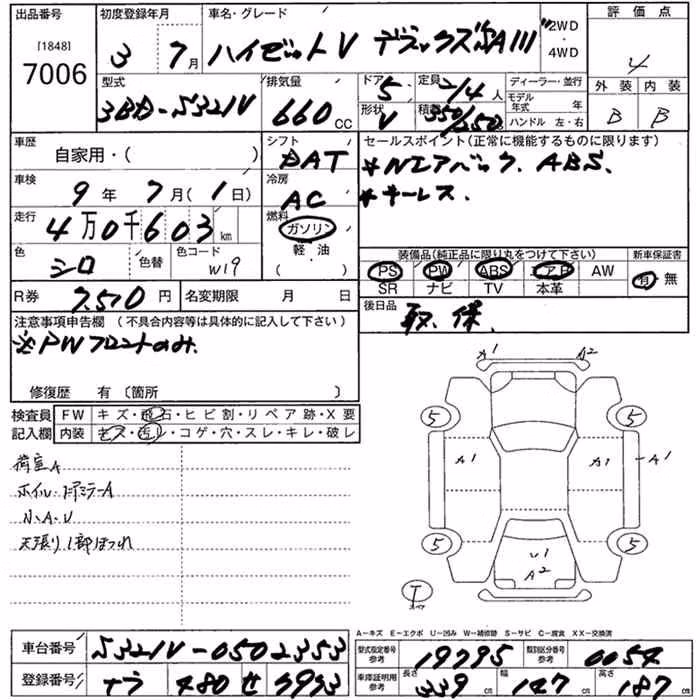 出品番号 初度登録年月 車名・グレード 評価点
[1848]
7006
3年 7月 ハイゼットV デラックス"SAIII" 2WD・4WD 4
型式 排気量 ドア 定員 ディーラー・並行 外装 内装
3BD-S321V 660cc 5 2/4人 モデル年式 年 B B
形状 V 積載 350/250 ハンドル 左・右
車歴 シフト セールスポイント(正常に機能するものに限ります)
自家用・( ) DAT *Wエアバック. ABS.
車検 冷房 *キーレス.
9年 7月(1日) AC
走行 燃料
4万0千603km ガソリン・軽・油( )
色 色替 色コード 装備品(純正品に限り丸をつけて下さい) 新車保証書
シロ W19 PS PW ABS エアB AW 有・無
SR ナビ TV 本革
R券 7,510円 名変期限 月 日 後日品 取.保.
注意事項申告欄 (不具合内容等は具体的に記入して下さい)
※PWフロントのみ.
修復歴 有〔箇所 〕
検査員 FW キズ・飛石・ヒビ割・リペア跡・X要
記入欄 内装 キズ・汚レ・コゲ・穴・スレ・キレ・破レ
荷室A
ホイル・ドアミラーA
小A・U
天張り1部ほつれ
A1 A2
5 5
A1 A1 A1
5 5
U1
A2
T
A-キズ E-エクボ U-凹み W-補修跡 S-サビ C-腐食 XX-交換済
車台番号 S321V-0502353 型式指定番号 参考 19795 類別区分番号 参考 0054
登録番号 ナラ 480 せ 車庫証明用 参考 長さ 339cm 幅 147cm 高さ 187cm